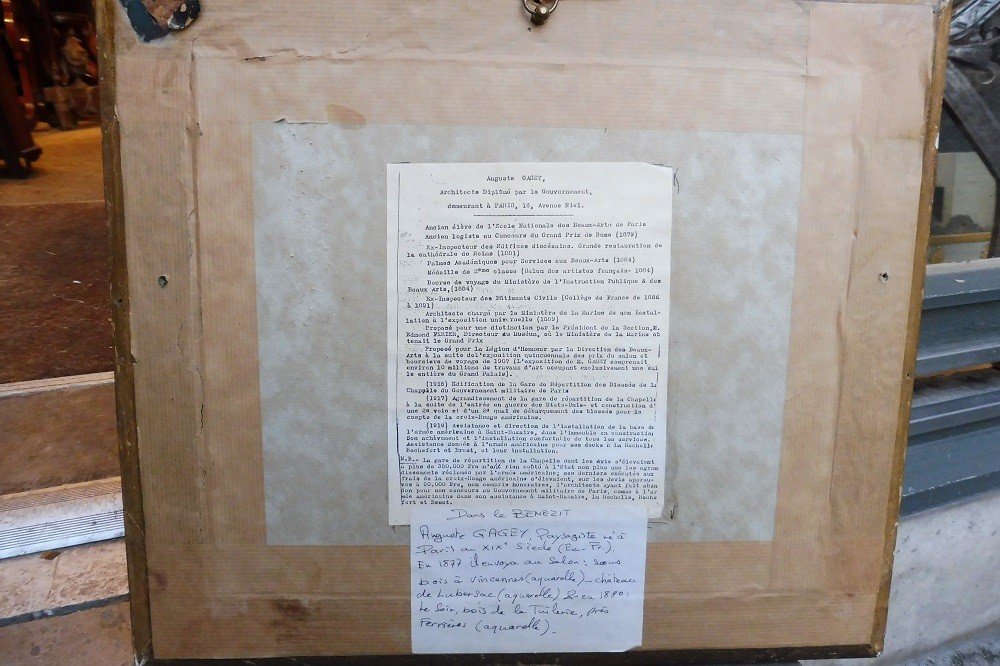 Auguste GAGEY,
Architecte Diplômé par le Gouvernement,
demeurant à PARIS, 13, Avenue Niel.
Ancien élève de l'Ecole Nationale des Beaux-Arts de Paris
Ancien logiste au Concours du Grand Prix de Rome (1879)
Ex-Inspecteur des Edifices diocésains. Grande restauration de
la cathédrale de Reims (1881)
Palmes Académiques pour Services aux Beaux-Arts (1884)
Médaille de 2ème classe (Salon des artistes français- 1884)
Bourse de voyage du Ministère de l'Instruction Publique & des
Beaux Arts, (1884)
Ex-Inspecteur des Bâtiments Civils (Collège de France de 1886
à 1891)
Architecte chargé par le Ministère de la Marine de son instal-
lation à l'exposition universelle (1889)
Proposé pour une distinction par le Président de la Section, M.
Edmond Directeur du Muséum, où le Ministère de la Marine
tenait le Grand Prix
Proposé pour la Légion d'Honneur par la Direction des Beaux-
Arts à la suite de l'exposition quinquennale des prix du salon et
boursiers de voyage de 1907 (L'exposition de M. GAGEY comprenait
environ 10 millions de travaux d'art occupant exclusivement une sal
le entière du Grand Palais).
(1916) Edification de la Gare de Répartition des Blessés de la
Chapelle du Gouvernement militaire de Paris
(1917) Agrandissement de la gare de répartition de la Chapelle
à la suite de l'entrée en guerre des Etats-Unis- et construction d'
une 2e voie et d'un 2e quai de débarquement des blessés pour le
compte de la croix-Rouge américaine.
(1919) Assistance et direction de l'installation de la base de
l'armée américaine à Saint-Nazaire, dans l'immeuble en construction
Son achèvement et l'installation comfortable de tous les services.
Assistance donnée à l'armée américaine pour ses docks à la Rochelle
Rochefort et Brest, et leur installation.
N.B.- La gare de répartition de la Chapelle dont les devis s'élevaient
à plus de 350.000 Frs n'a rien coûté à l'Etat non plus que les agran
dissements réclamés par l'armée américaine; ces derniers exécutés aux
frais de la croix-Rouge américaine s'élevaient, sur les devis approu-
vés à 90.000 Frs, non compris honoraires, l'architecte ayant fait aban
don pour son concours au Gouvernement militaire de Paris, comme à l'ar
mée américaine dans son assistance à Saint-Nazaire, la Rochelle, Roche
fort et Brest.
Dans le BENEZIT
Auguste GAGEY, Paysagiste né à
Paris au XIXe Siècle (Ec. Fr.)
En 1877 il envoya au Salon : sous
bois à Vincennes (aquarelle) – château
de Lubersac (aquarelle) & en 1880 :
Le Soir, bois de la Tuilerie, près
Ferrières (aquarelle).